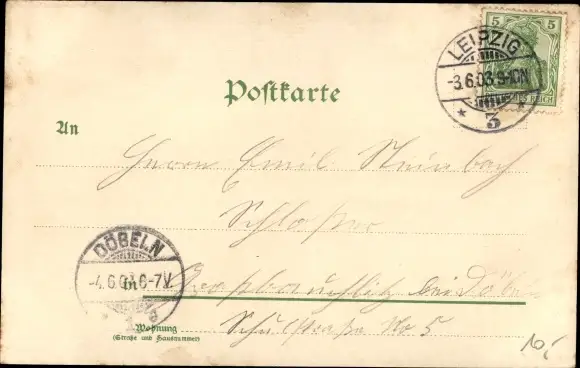 5 5
LEIPZIG
-3.6.03.9-10N
* 3 *
Postkarte
An
Herrn Emil Steinbach
Schlosser
DÖBELN
-4.6.03.6-7V
in Großbauchlitz bei Döbeln
Wohnung
Schulstraße No 5
(Straße und Hausnummer)
10,-